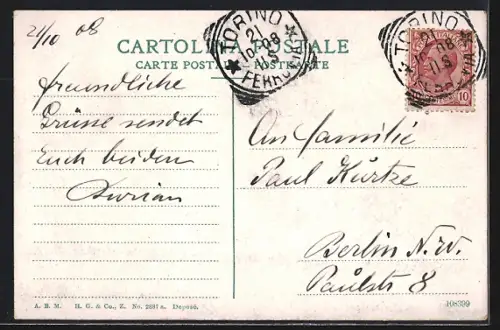 21/10 08
CARTOLINA POSTALE
CARTE POSTALE
TORINO
21
10-08
FERROVIA
TORINO
21
10-08
10
freundliche
Grüsse sendet
Euch beiden
An Familie
Paul Kürtze
Berlin N.W.
Paulstr 8
A. B. M. H. G. & Co., Z. No. 2891a. Deposé.
108399